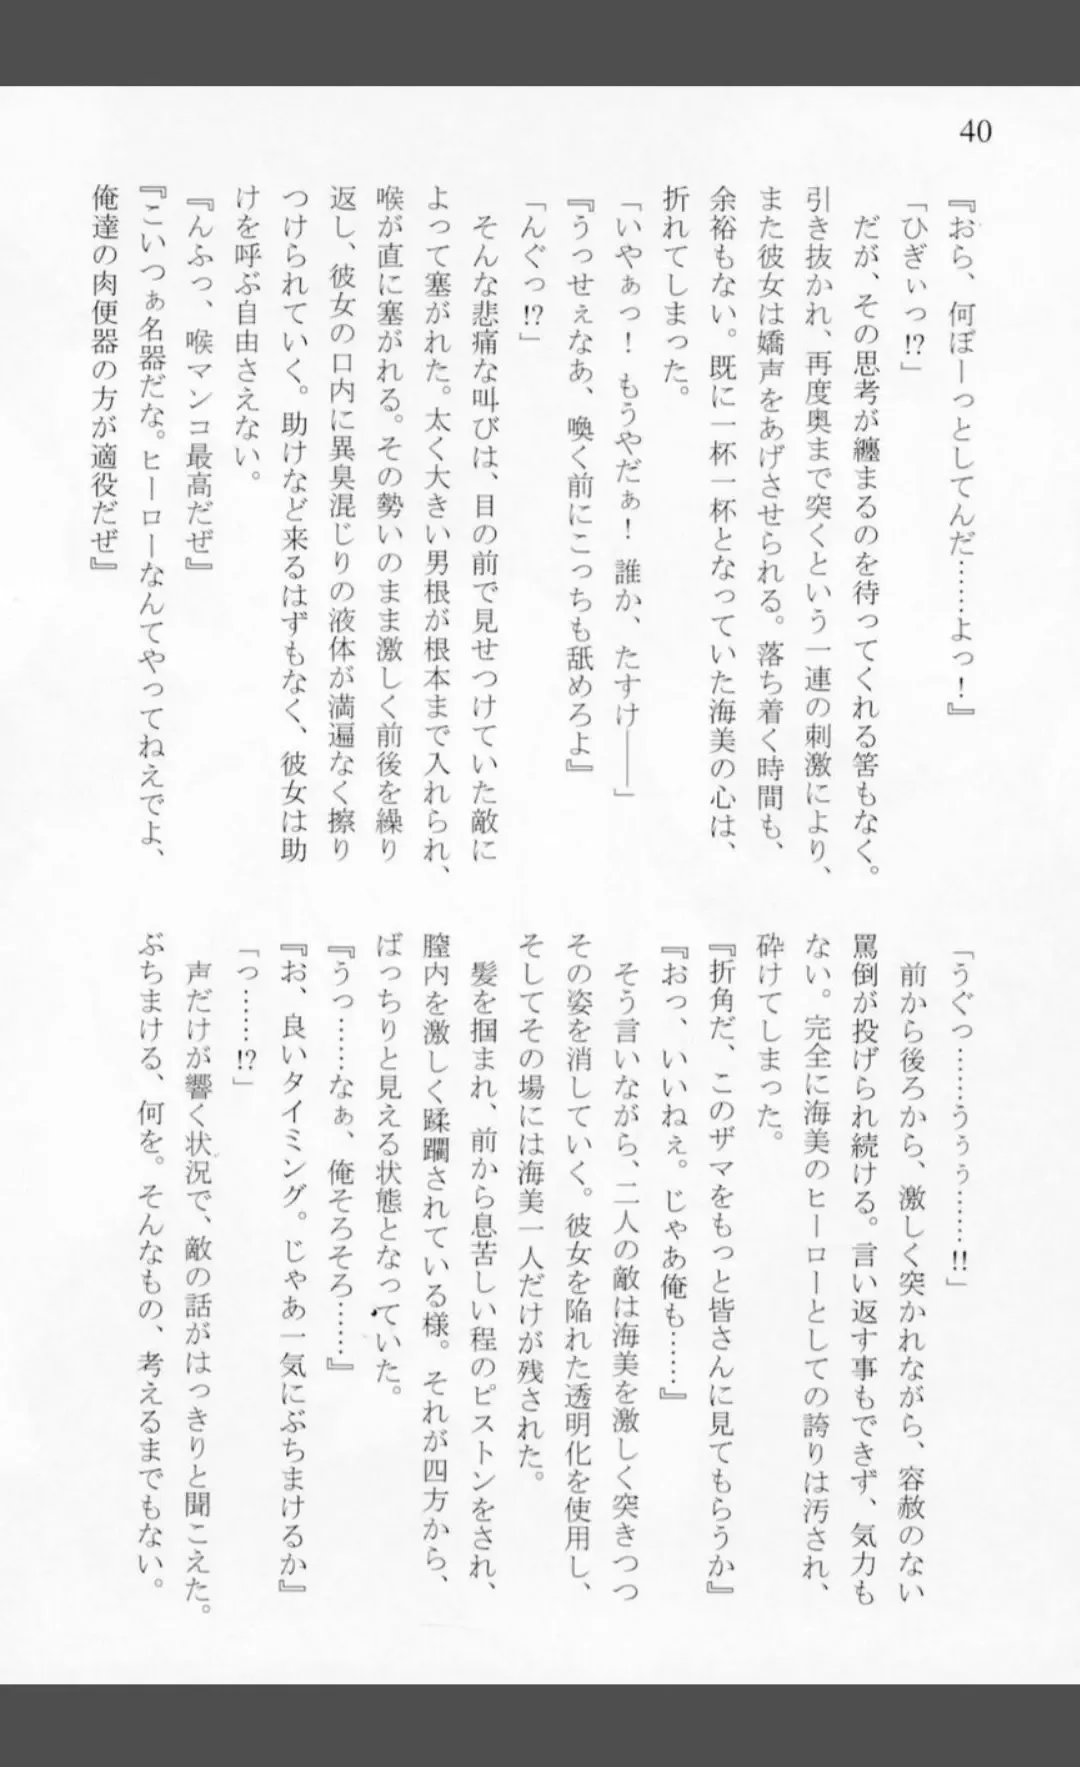 40
『おら、何ぼーっとしてんだ……よっ！』
「ひぎぃっ!?」
だが、その思考が纏まるのを待ってくれる筈もなく。
引き抜かれ、再度奥まで突くという一連の刺激により、
また彼女は嬌声をあげさせられる。落ち着く時間も、
余裕もない。既に一杯一杯となっていた海美の心は、
折れてしまった。
「いやぁっ！　もうやだぁ！　誰か、たすけ――」
『うっせぇなあ、喚く前にこっちも舐めろよ』
「んぐっ!?」
そんな悲痛な叫びは、目の前で見せつけていた敵に
よって塞がれた。太く大きい男根が根本まで入れられ、
喉が直に塞がれる。その勢いのまま激しく前後を繰り
返し、彼女の口内に異臭混じりの液体が満遍なく擦り
つけられていく。助けなど来るはずもなく、彼女は助
けを呼ぶ自由さえない。
『んふっ、喉マンコ最高だぜ』
『こいつぁ名器だな。ヒーローなんてやってねえでよ、
俺達の肉便器の方が適役だぜ』
「うぐっ……うぅぅ……!!」
前から後ろから、激しく突かれながら、容赦のない
罵倒が投げられ続ける。言い返す事もできず、気力も
ない。完全に海美のヒーローとしての誇りは汚され、
砕けてしまった。
『折角だ、このザマをもっと皆さんに見てもらうか』
『おっ、いいねぇ。じゃあ俺も……』
そう言いながら、二人の敵は海美を激しく突きつつ
その姿を消していく。彼女を陥れた透明化を使用し、
そしてその場には海美一人だけが残された。
髪を掴まれ、前から息苦しい程のピストンをされ、
膣内を激しく蹂躙されている様。それが四方から、
ばっちりと見える状態となっていた。
『うっ……なぁ、俺そろそろ……』
『お、良いタイミング。じゃあ一気にぶちまけるか』
「っ……!?」
声だけが響く状況で、敵の話がはっきりと聞こえた。
ぶちまける、何を。そんなもの、考えるまでもない。